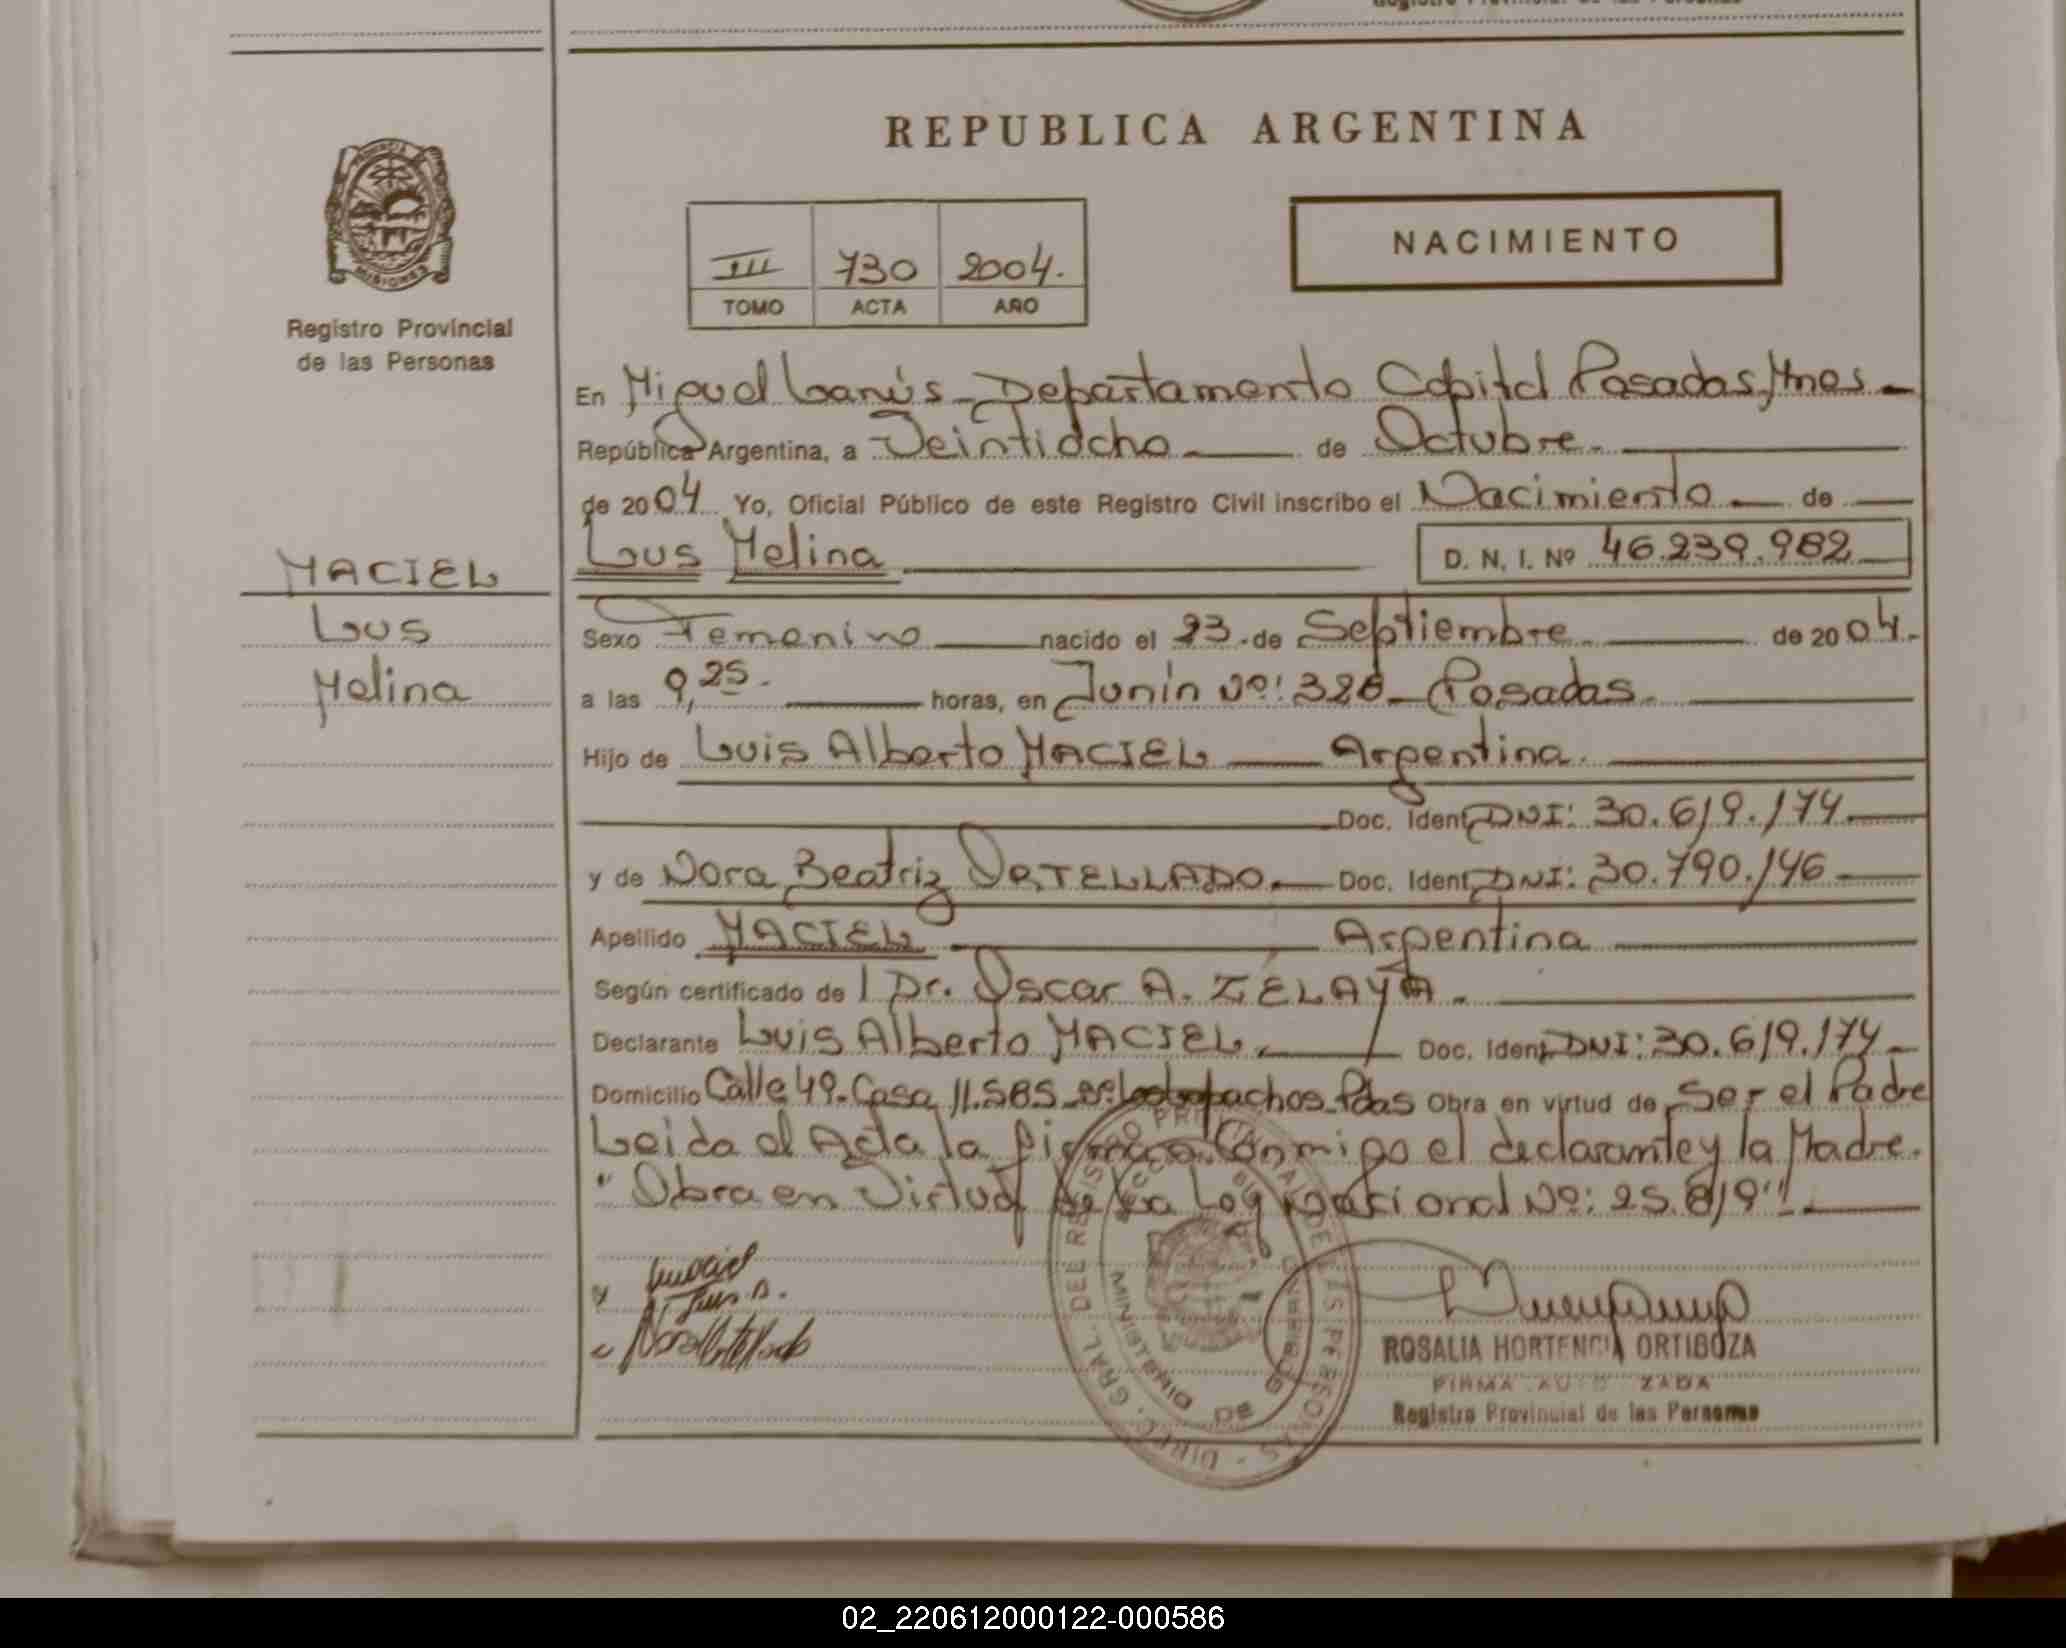 REPUBLICA ARGENTINA
NACIMIENTO
III 730 2004.
TOMO ACTA AÑO
PROVINCIA
MISIONES
Registro Provincial
de las Personas
MACIEL
Lus
Melina
En Miguel Lanús - Departamento Capital Posadas, Mnes -
República Argentina, a Veintiocho de Octubre.
de 2004 Yo, Oficial Público de este Registro Civil inscribo el Nacimiento de
Lus Melina D. N. I. Nº 46.239.982
Sexo Femenino nacido el 23. de Septiembre de 2004.
a las 9,25. horas, en Junín Nº: 328 - Posadas.
Hijo de Luis Alberto MACIEL Argentina.
Doc. Ident. DNI: 30.619.174
y de Nora Beatriz ORTELLADO. Doc. Ident. DNI: 30.790.146
Apellido MACIEL Argentina
Según certificado de l Dr. Oscar A. ZÉLAYA.
Declarante Luis Alberto MACIEL. Doc. Ident. DNI: 30.619.174
Domicilio Calle 49. Casa 11.585 Pdas Obra en virtud de Ser el Padre
Leida el Acta la firma Conmigo el declarante y la Madre.
"Obra en Virtud de la Ley Nacional Nº: 25.819"
ROSALIA HORTENCIA ORTIGOZA
FIRMA AUTORIZADA
Registro Provincial de las Personas
02_220612000122-000586